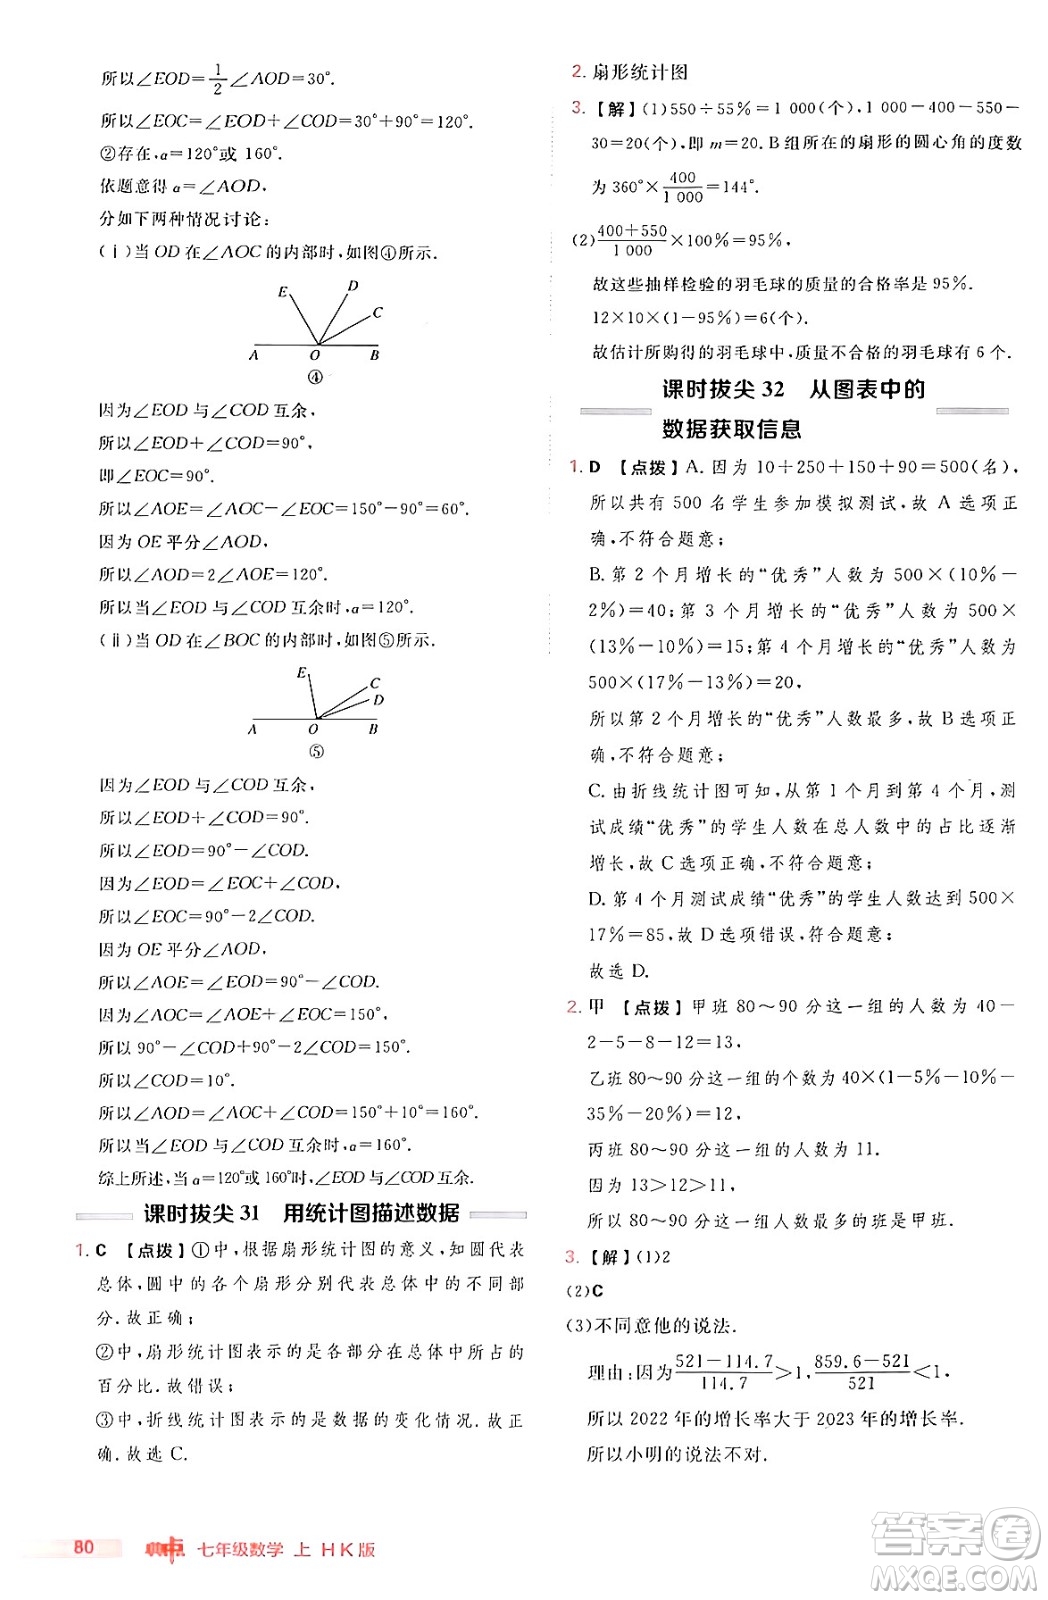 所以∠EOD=1/2∠AOD=30°.
所以∠EOC=∠EOD+∠COD=30°+90°=120°.
②存在,α=120°或 160°.
依题意得 α=∠AOD,
分如下两种情况讨论:
(ⅰ)当 OD 在∠AOC 的内部时,如图④所示.
E D C
A O B
④
因为∠EOD 与∠COD 互余,
所以∠EOD+∠COD=90°,
即∠EOC=90°.
所以∠AOE=∠AOC-∠EOC=150°-90°=60°.
因为 OE 平分∠AOD,
所以∠AOD=2∠AOE=120°;
所以当∠EOD 与∠COD 互余时,α=120°.
(ⅱ)当 OD 在∠BOC 的内部时,如图⑤所示.
E C
D
A O B
⑤
因为∠EOD 与∠COD 互余,
所以∠EOD+∠COD=90°.
所以∠EOD=90°-∠COD.
因为∠EOD=∠EOC+∠COD,
所以∠EOC=90°-2∠COD.
因为 OE 平分∠AOD,
所以∠AOE=∠EOD=90°-∠COD.
所以∠AOC=∠AOE+∠EOC=150°.
所以 90°-∠COD+90°-2∠COD=150°.
所以∠COD=10°.
所以∠AOD=∠AOC+∠COD=150°+10°=160°.
所以当∠EOD 与∠COD 互余时,α=160°.
综上所述,α=120°或160°时,∠EOD 与∠COD 互余.
课时拔尖 31 用统计图描述数据
1. C 【点拨】①中,根据扇形统计图的意义,知圆代表
总体,圆中的各个扇形分别代表总体中的不同部
分.故正确;
②中,扇形统计图表示的是各部分在总体中所占的
百分比.故错误;
③中,折线统计图表示的是数据的变化情况.故正
确.故选 C.
2. 扇形统计图
3. 【解】(1)550÷55%=1 000(个),1 000-400-550-
30=20(个),即 m=20. B 组所在的扇形的圆心角的度数
为 360°×400/1 000=144°.
(2)(400+550)/1 000×100%=95%,
故这些抽样检验的羽毛球的质量的合格率是 95%.
12×10×(1-95%)=6(个).
故估计所购得的羽毛球中,质量不合格的羽毛球有 6 个.
课时拔尖 32 从图表中的
数据获取信息
1. D 【点拨】A. 因为 10+250+150+90=500(名),
所以共有 500 名学生参加模拟测试,故 A 选项正
确,不符合题意;
B. 第 2 个月增长的“优秀”人数为 500×(10%-
2%)=40;第 3 个月增长的“优秀”人数为 500×
(13%-10%)=15;第 4 个月增长的“优秀”人数为
500×(17%-13%)=20,
所以第 2 个月增长的“优秀”人数最多,故 B 选项正
确,不符合题意;
C. 由折线统计图可知,从第 1 个月到第 4 个月,测
试成绩“优秀”的学生人数在总人数中的占比逐渐
增长,故 C 选项正确,不符合题意;
D. 第 4 个月测试成绩“优秀”的学生人数达到 500×
17%=85,故 D 选项错误,符合题意.
故选 D.
2. 甲 【点拨】甲班 80～90 分这一组的人数为 40-
2-5-8-12=13,
乙班 80～90 分这一组的人数为 40×(1-5%-10%-
35%-20%)=12,
丙班 80～90 分这一组的人数为 11.
因为 13>12>11,
所以 80～90 分这一组人数最多的班是甲班.
3. 【解】(1)2
(2)C
(3)不同意他的说法.
理由:因为(521-114.7)/114.7>1,(859.6-521)/521<1,
所以 2022 年的增长率大于 2023 年的增长率.
所以小明的说法不对.
80 典中点 七年级数学 上 HK版
答案圈
MXQE.COM